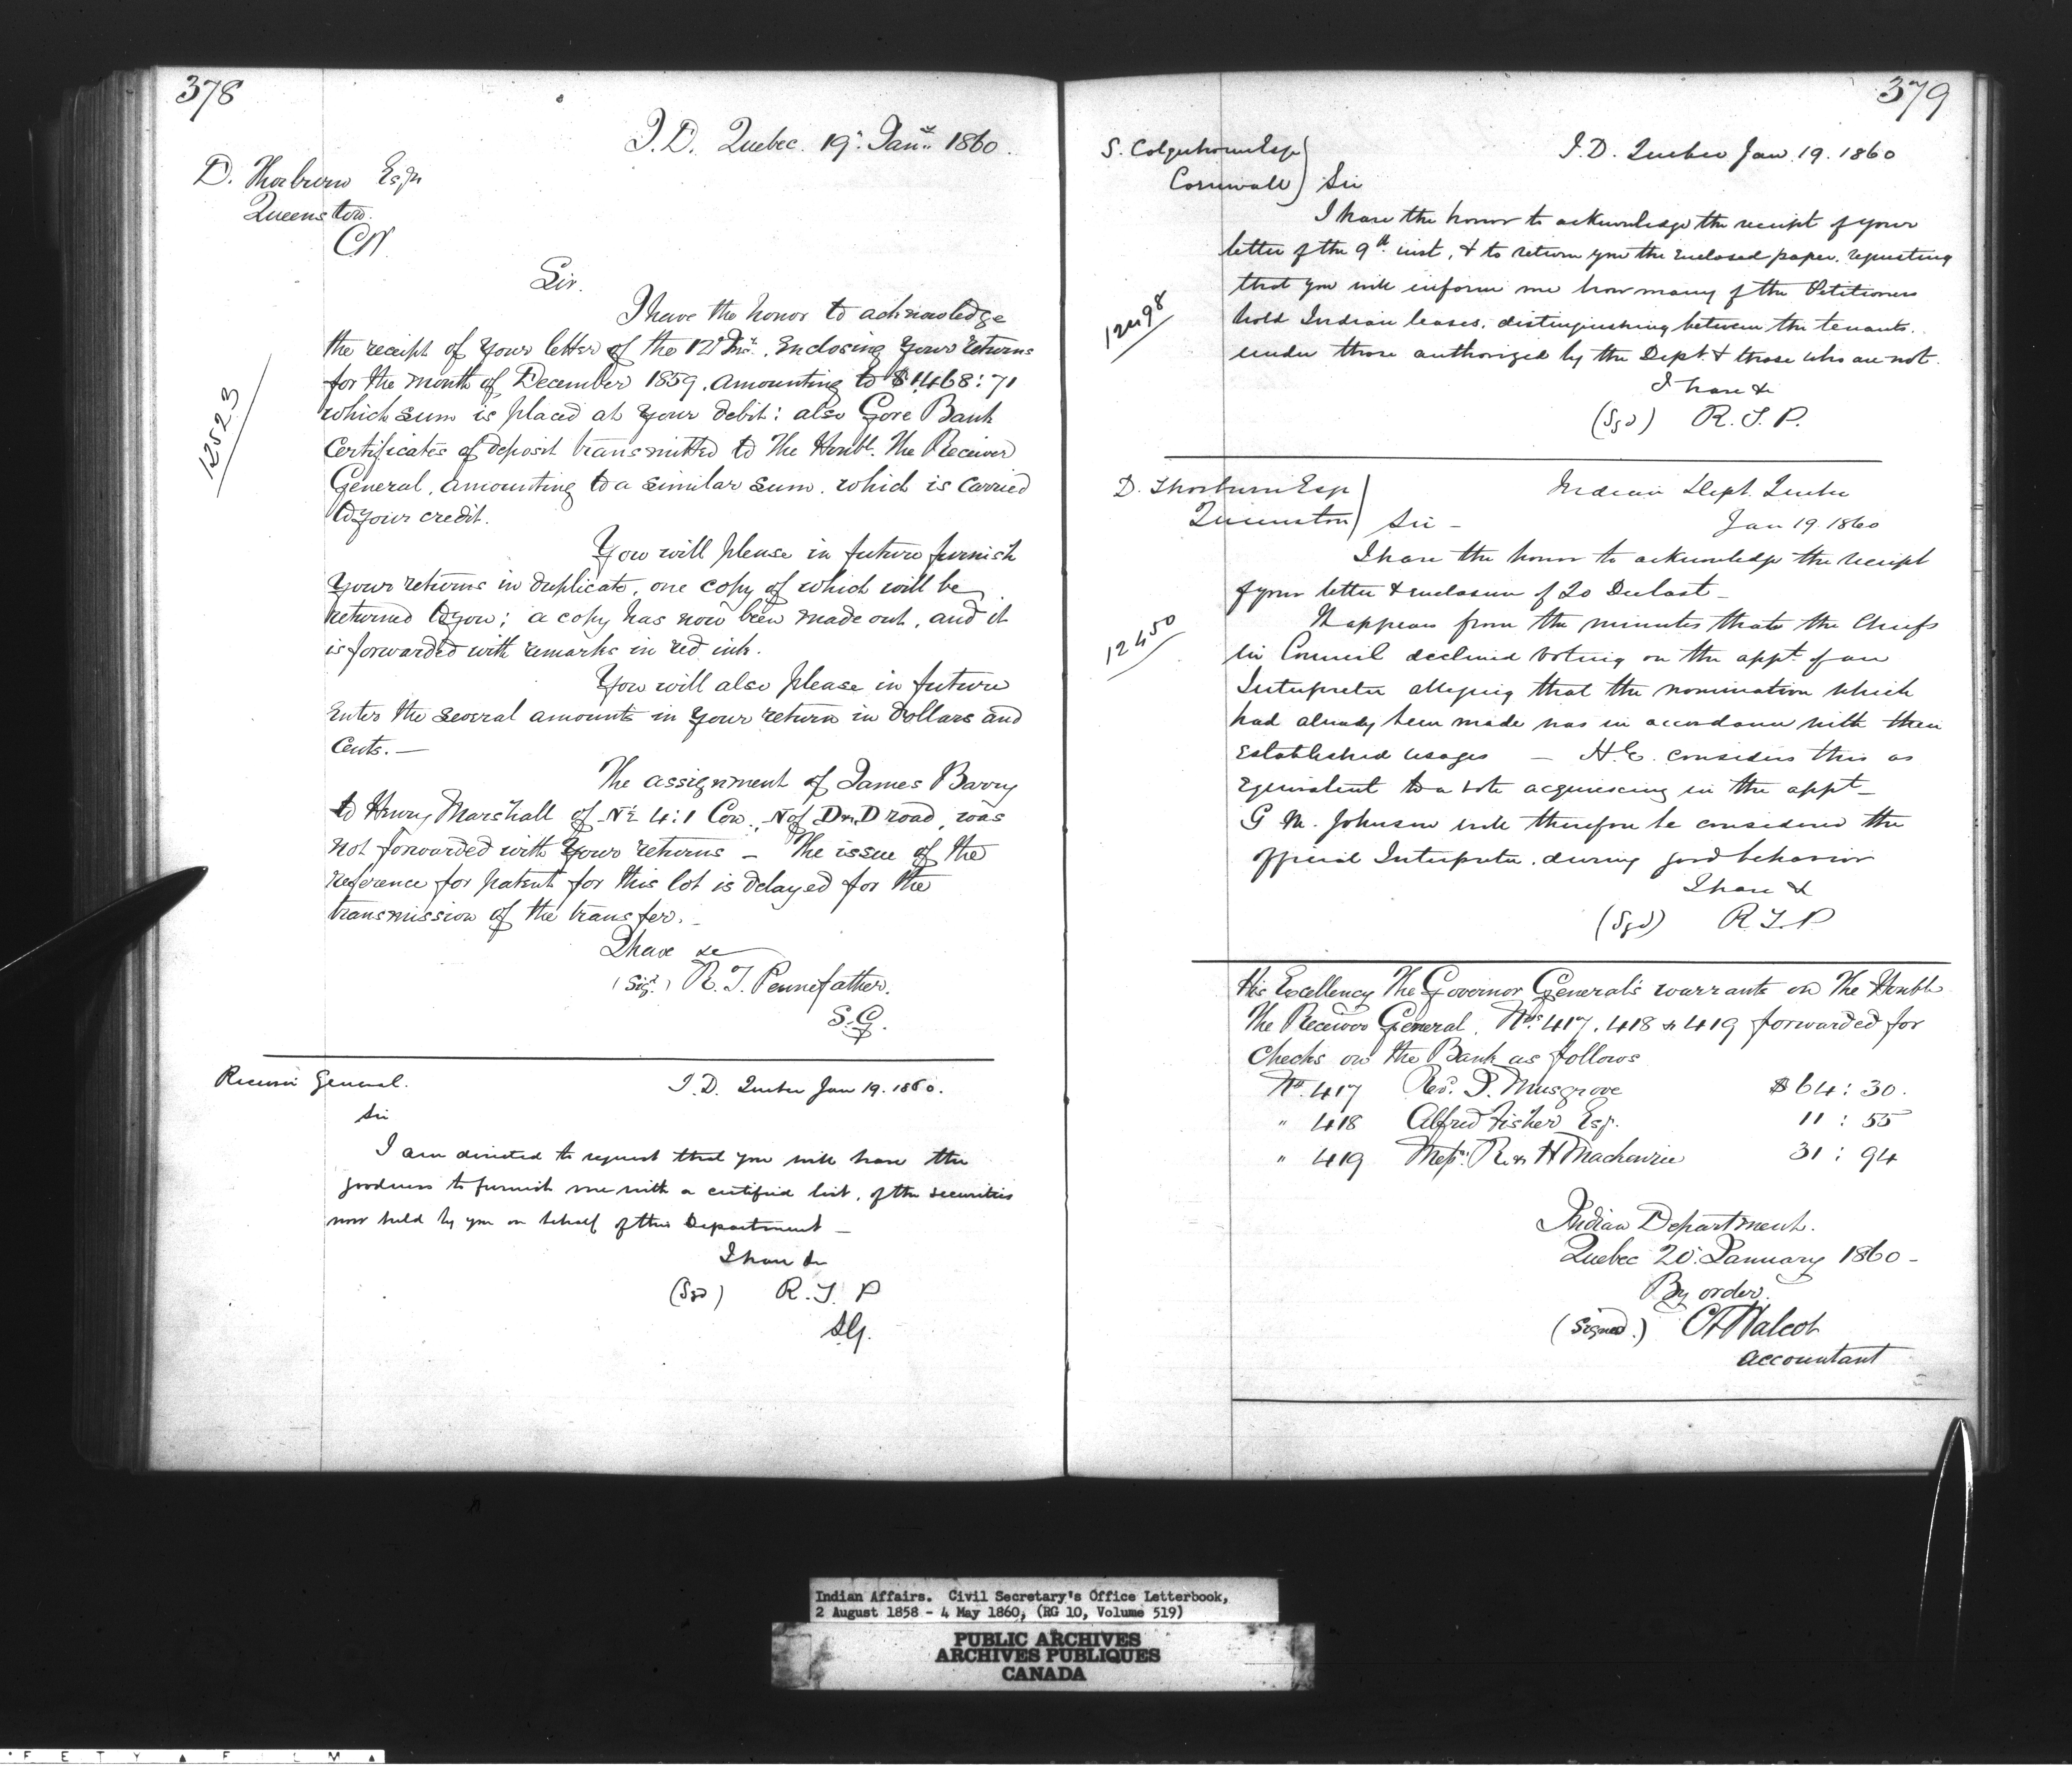 378
I.D. Quebec. 19th Jany. 1860.
D. Thorburn Esqr
Queenston.
CW.
Sir.
12523
I have the honor to acknowledge
the receipt of your letter of the 12th Inst. Enclosing your returns
for the month of December 1859. amounting to $1468:71
which sum is placed at your debit: also Gore Bank
Certificates of deposit transmitted to The Honbl. The Receiver
General, amounting to a similar sum. which is carried
to your credit.
You will please in future furnish
your returns in duplicate, one copy of which will be
returned to you; a copy has now been made out, and it
is forwarded with remarks in red ink.
You will also please in future
Enter the several amounts in your return in Dollars and
Cents. —
The assignment of James Barry
to Henry Marshall of N½ 4:1 Con., N of D road, was
not forwarded with your returns — The issue of the
Reference for patent for this lot is delayed for the
transmission of the transfer. —
I have &c
(Sigd.) R. T. Pennefather.
S.G.
Receiver General.
I.D. Quebec Jan 19. 1860.
Sir
I am directed to request that you will have the
goodness to furnish me with a certified list, of the securities
now held by you on behalf of this Department —
I have &c
(Sgd) R. T. P
S.G.
379
S. Colquhoun Esq
Cornwall
I.D. Quebec Jan. 19. 1860
Sir
12498
I have the honor to acknowledge the receipt of your
letter of the 9th inst, & to return you the enclosed paper, requesting
that you will inform me how many of the Petitioners
hold Indian leases, distinguishing between the tenants
under those authorized by the Dept. & those who are not.
I have &
(Sgd) R. T. P.
D. Thorburn Esq
Queenston
Indian Dept. Quebec
Jan 19. 1860
Sir —
12450
I have the honor to acknowledge the receipt
of your letter & enclosure of 20 Dec last —
It appears from the minutes that the Chiefs
in Council declined voting on the appt. of an
Interpreter alleging that the nomination which
had already been made was in accordance with their
established usages — H.E. considers this as
equivalent to a vote acquiescing in the appt —
G. M. Johnson will therefore be considered the
official Interpreter. during good behavior
I have &
(Sgd) R. T. P
His Excellency The Governor General's warrants on The Honbl.
The Receiver General. Nos. 417, 418 & 419 forwarded for
Checks on the Bank as follows
No. 417 Revd. P. Musgrove $64:30.
" 418 Alfred Fisher Esq. 11:55
" 419 Messrs. R & H Mackenzie 31:94
Indian Department.
Quebec 20. January 1860 —
By order.
(Signed.) CT Walcot
Accountant
Indian Affairs. Civil Secretary's Office Letterbook,
2 August 1858 - 4 May 1860, (RG 10, Volume 519)
PUBLIC ARCHIVES
ARCHIVES PUBLIQUES
CANADA
FETY ▲ FILM ▲